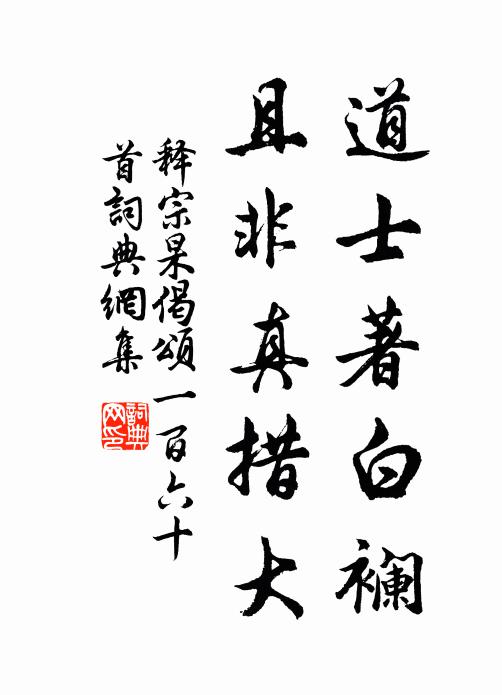 道士著白襴
且非真措大
释宗杲偈頌一百六十
首詞典網集
詞典
网印